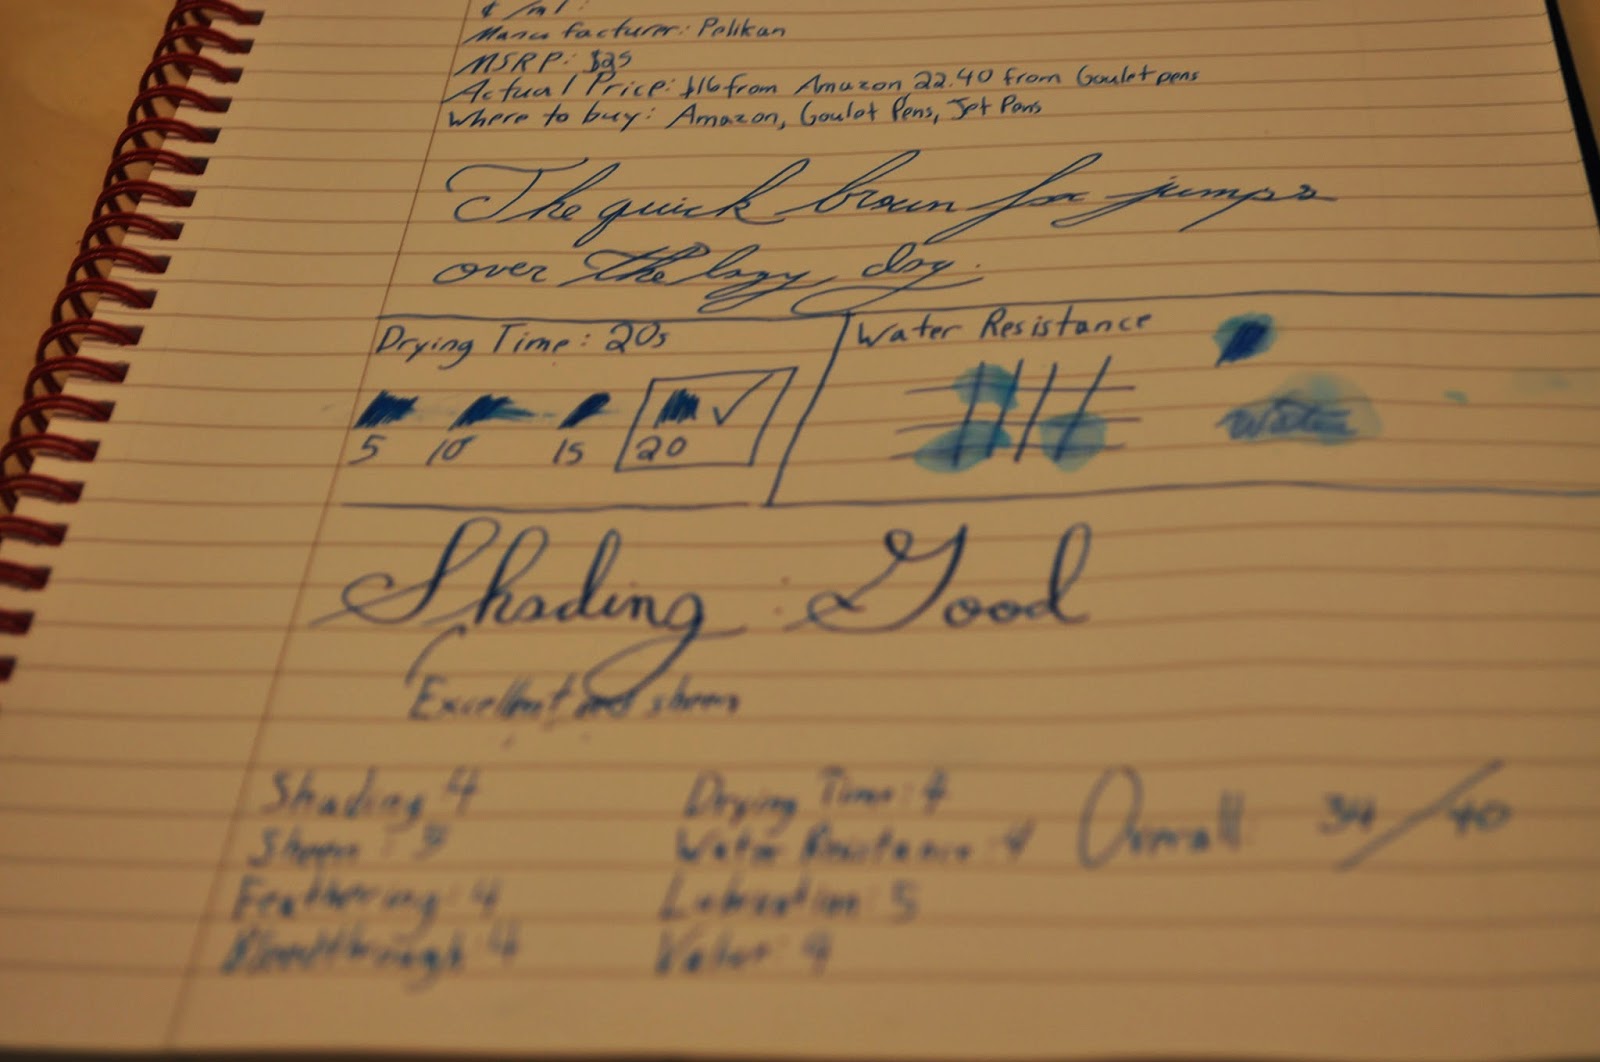 $/ml:
Manufacturer: Pelikan
MSRP: $25
Actual Price: $16 from Amazon 22.40 from Gouletpens
Where to buy: Amazon, Goulet Pens, Jet Pens
The quick brown fox jumps
over the lazy dog.
Drying Time: 20s
5 10 15 20 ✓
Water Resistance
Water
Shading: Good
Excellent red sheen
Shading 4
Sheen: 5
Feathering: 4
Bleedthrough: 4
Drying Time: 4
Water Resistance: 4
Lubrication: 5
Value: 4
Overall 34/40